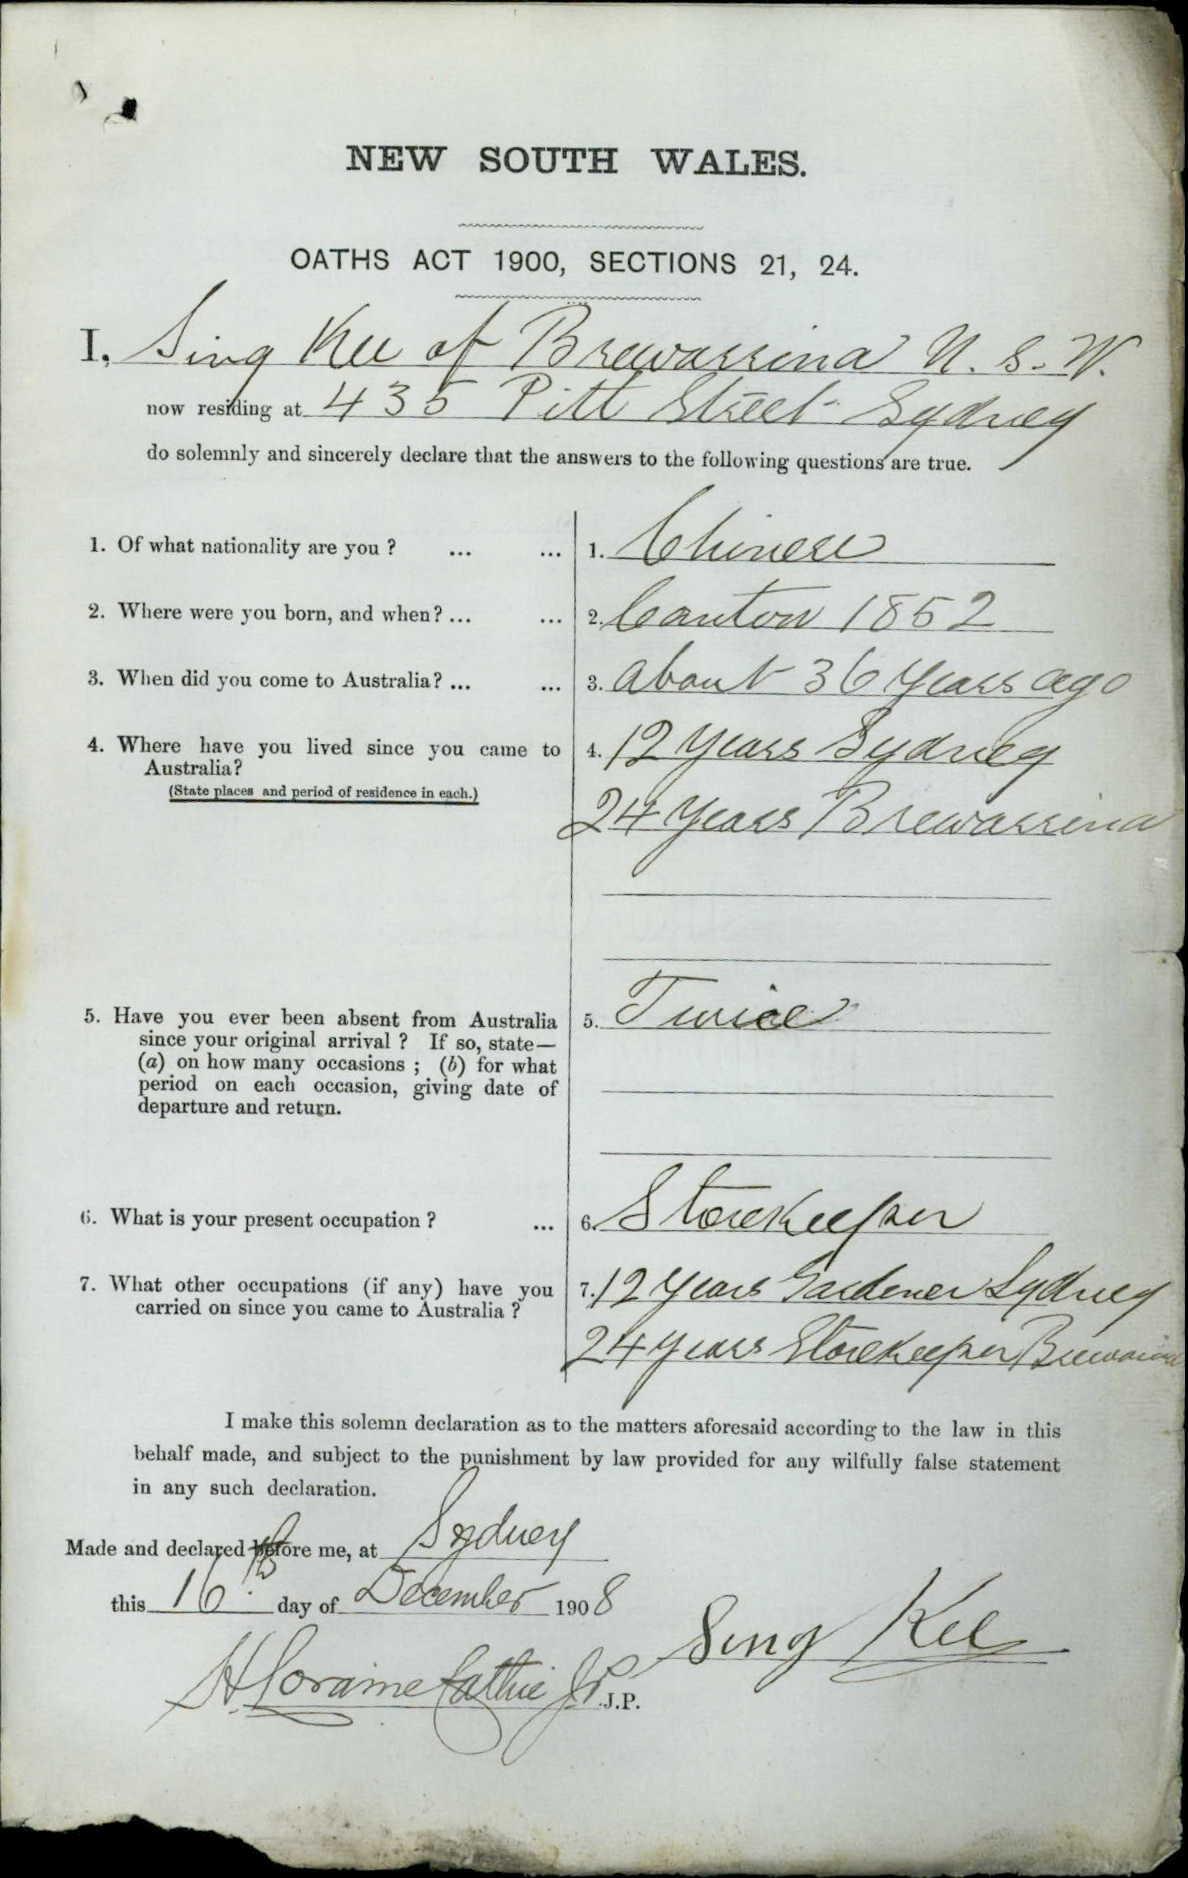 NEW SOUTH WALES.
OATHS ACT 1900, SECTIONS 21, 24.
I, Sing Kee of Brewarrina N. S. W.
now residing at 435 Pitt Street Sydney
do solemnly and sincerely declare that the answers to the following questions are true.
1. Of what nationality are you ? ... ... 1. Chinese
2. Where were you born, and when? ... ... 2. Canton 1852
3. When did you come to Australia? ... ... 3. about 36 years ago
4. Where have you lived since you came to 4. 12 years Sydney
Australia?
(State places and period of residence in each.)
24 years Brewarrina
5. Have you ever been absent from Australia 5. Twice
since your original arrival ? If so, state—
(a) on how many occasions ; (b) for what
period on each occasion, giving date of
departure and return.
6. What is your present occupation ? ... 6. Storekeeper
7. What other occupations (if any) have you 7. 12 years Gardener Sydney
carried on since you came to Australia ?
24 years Storekeeper Brewarina
I make this solemn declaration as to the matters aforesaid according to the law in this
behalf made, and subject to the punishment by law provided for any wilfully false statement
in any such declaration.
Made and declared before me, at Sydney
this 16th day of December 1908
Sing Kee
H. Loraine Cathie JP J.P.